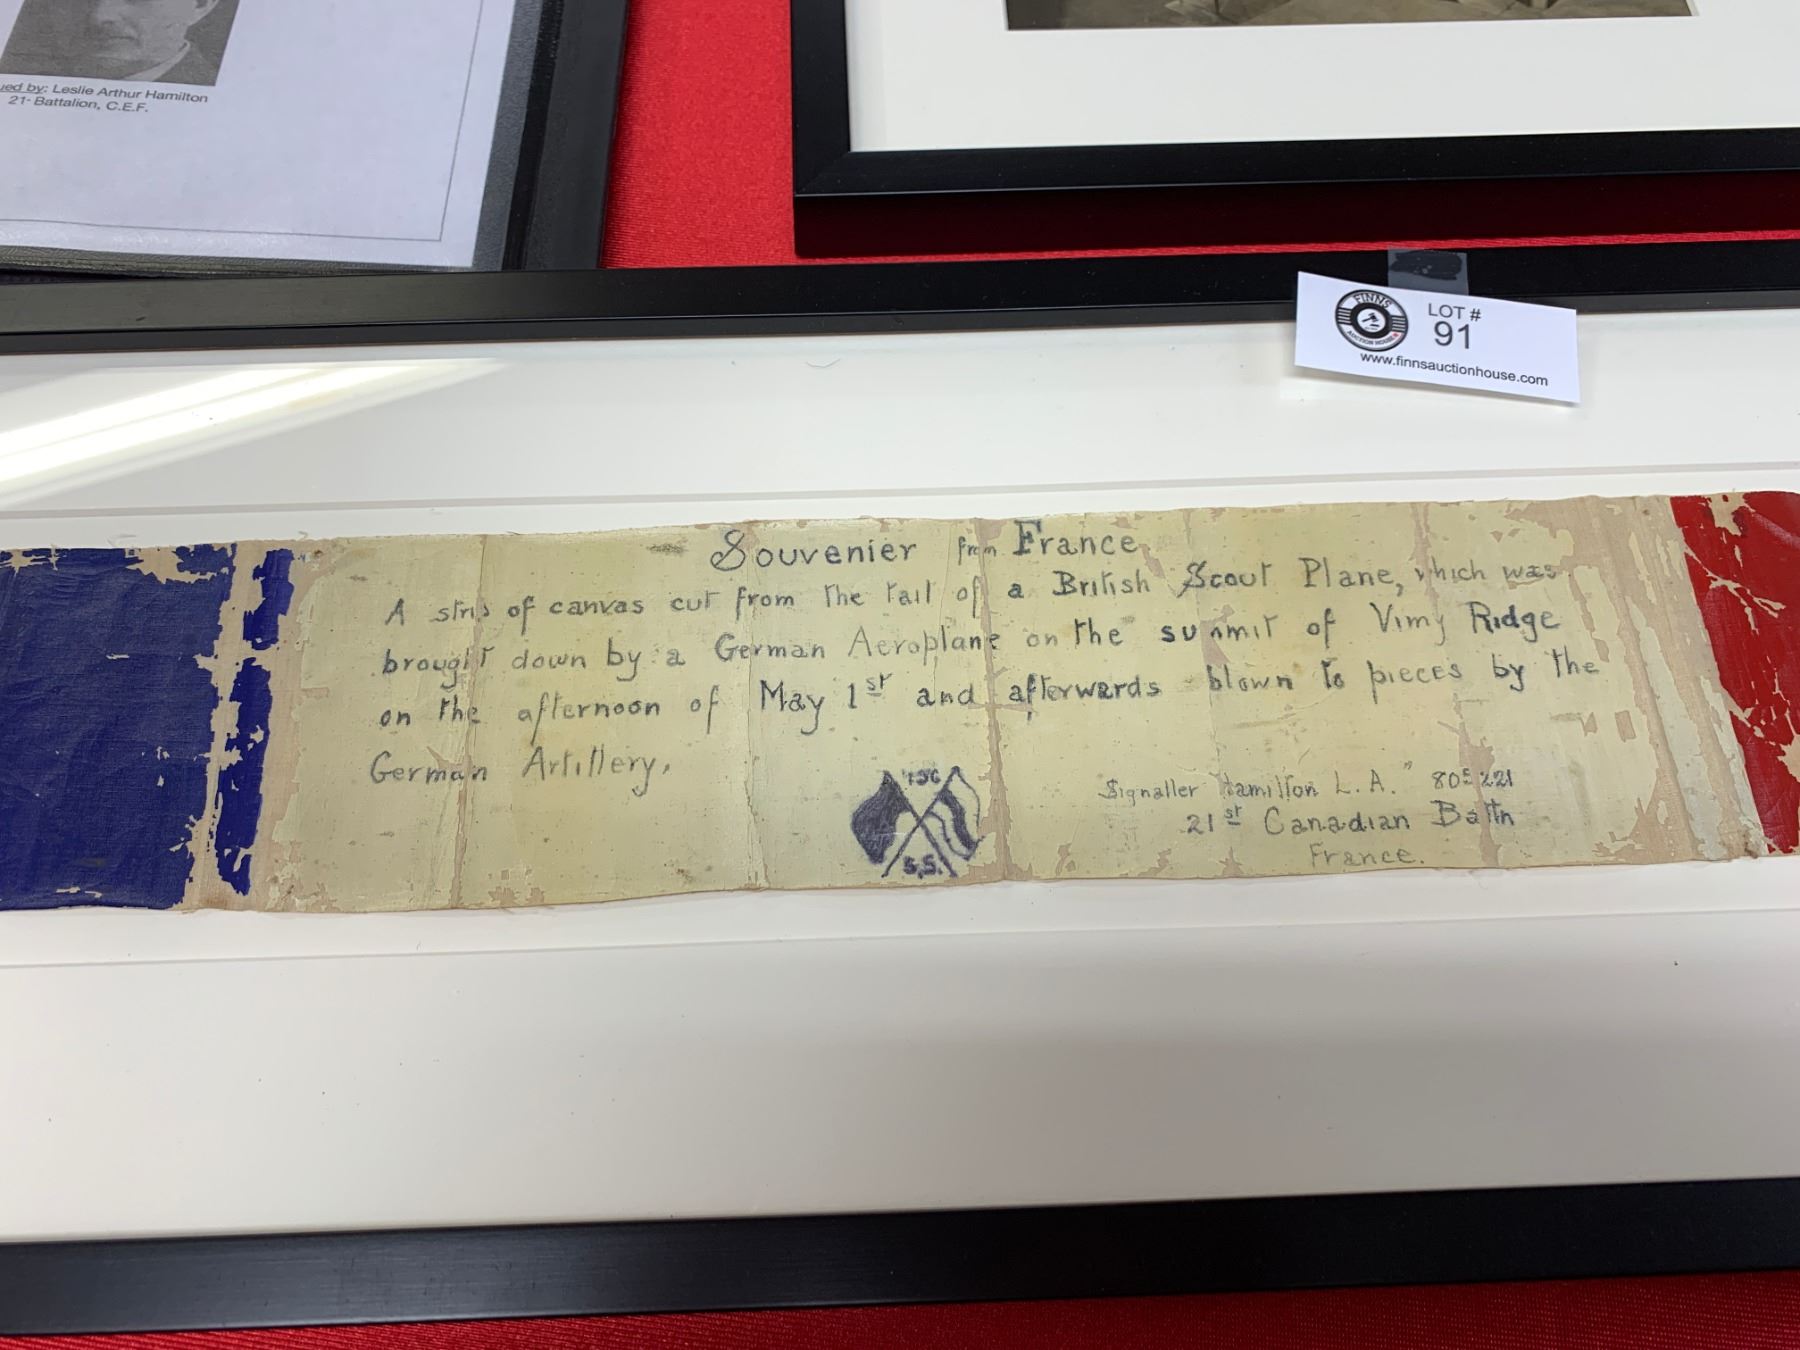 ued by: Leslie Arthur Hamilton
21st Battalion, C.E.F.
FINNS
AUCTION HOUSE
LOT #
91
www.finnsauctionhouse.com
Souvenier from France
A strip of canvas cut from the tail of a British Scout Plane, which was
brought down by a German Aeroplane on the summit of Vimy Ridge
on the afternoon of May 1st and afterwards blown to pieces by the
German Artillery.
S.S.
Signaller "Hamilton L. A." 805221
21st Canadian Battn
France.